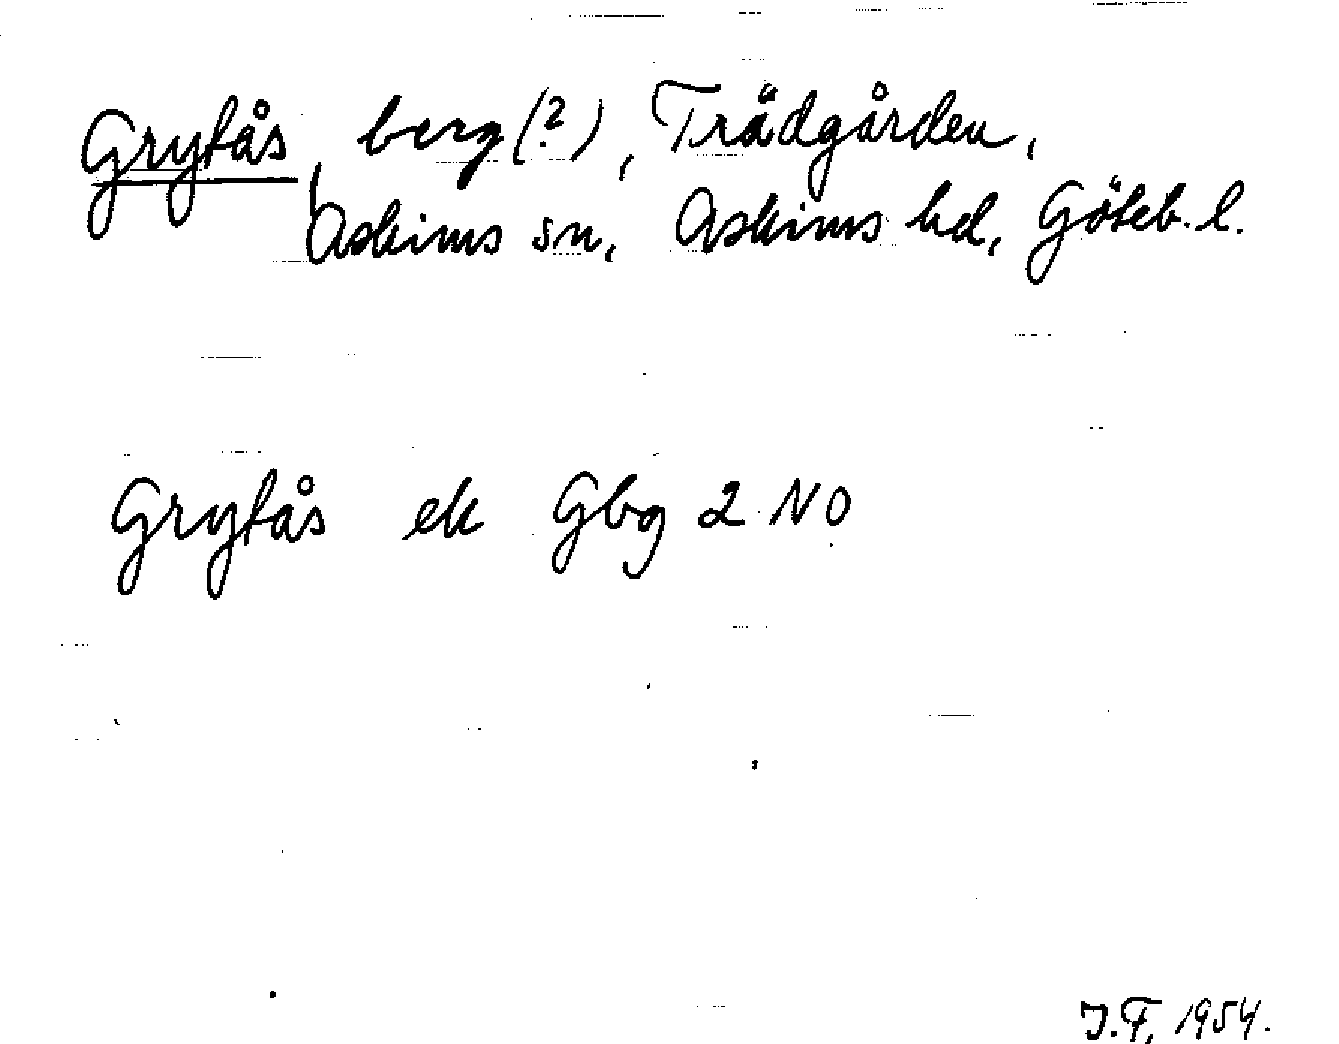 Grytås, berg (?), Trädgården,
Askims sn, Askims hd, Göteb. l.
Grytås ek Gbg 2 NO
J.F, 1954.